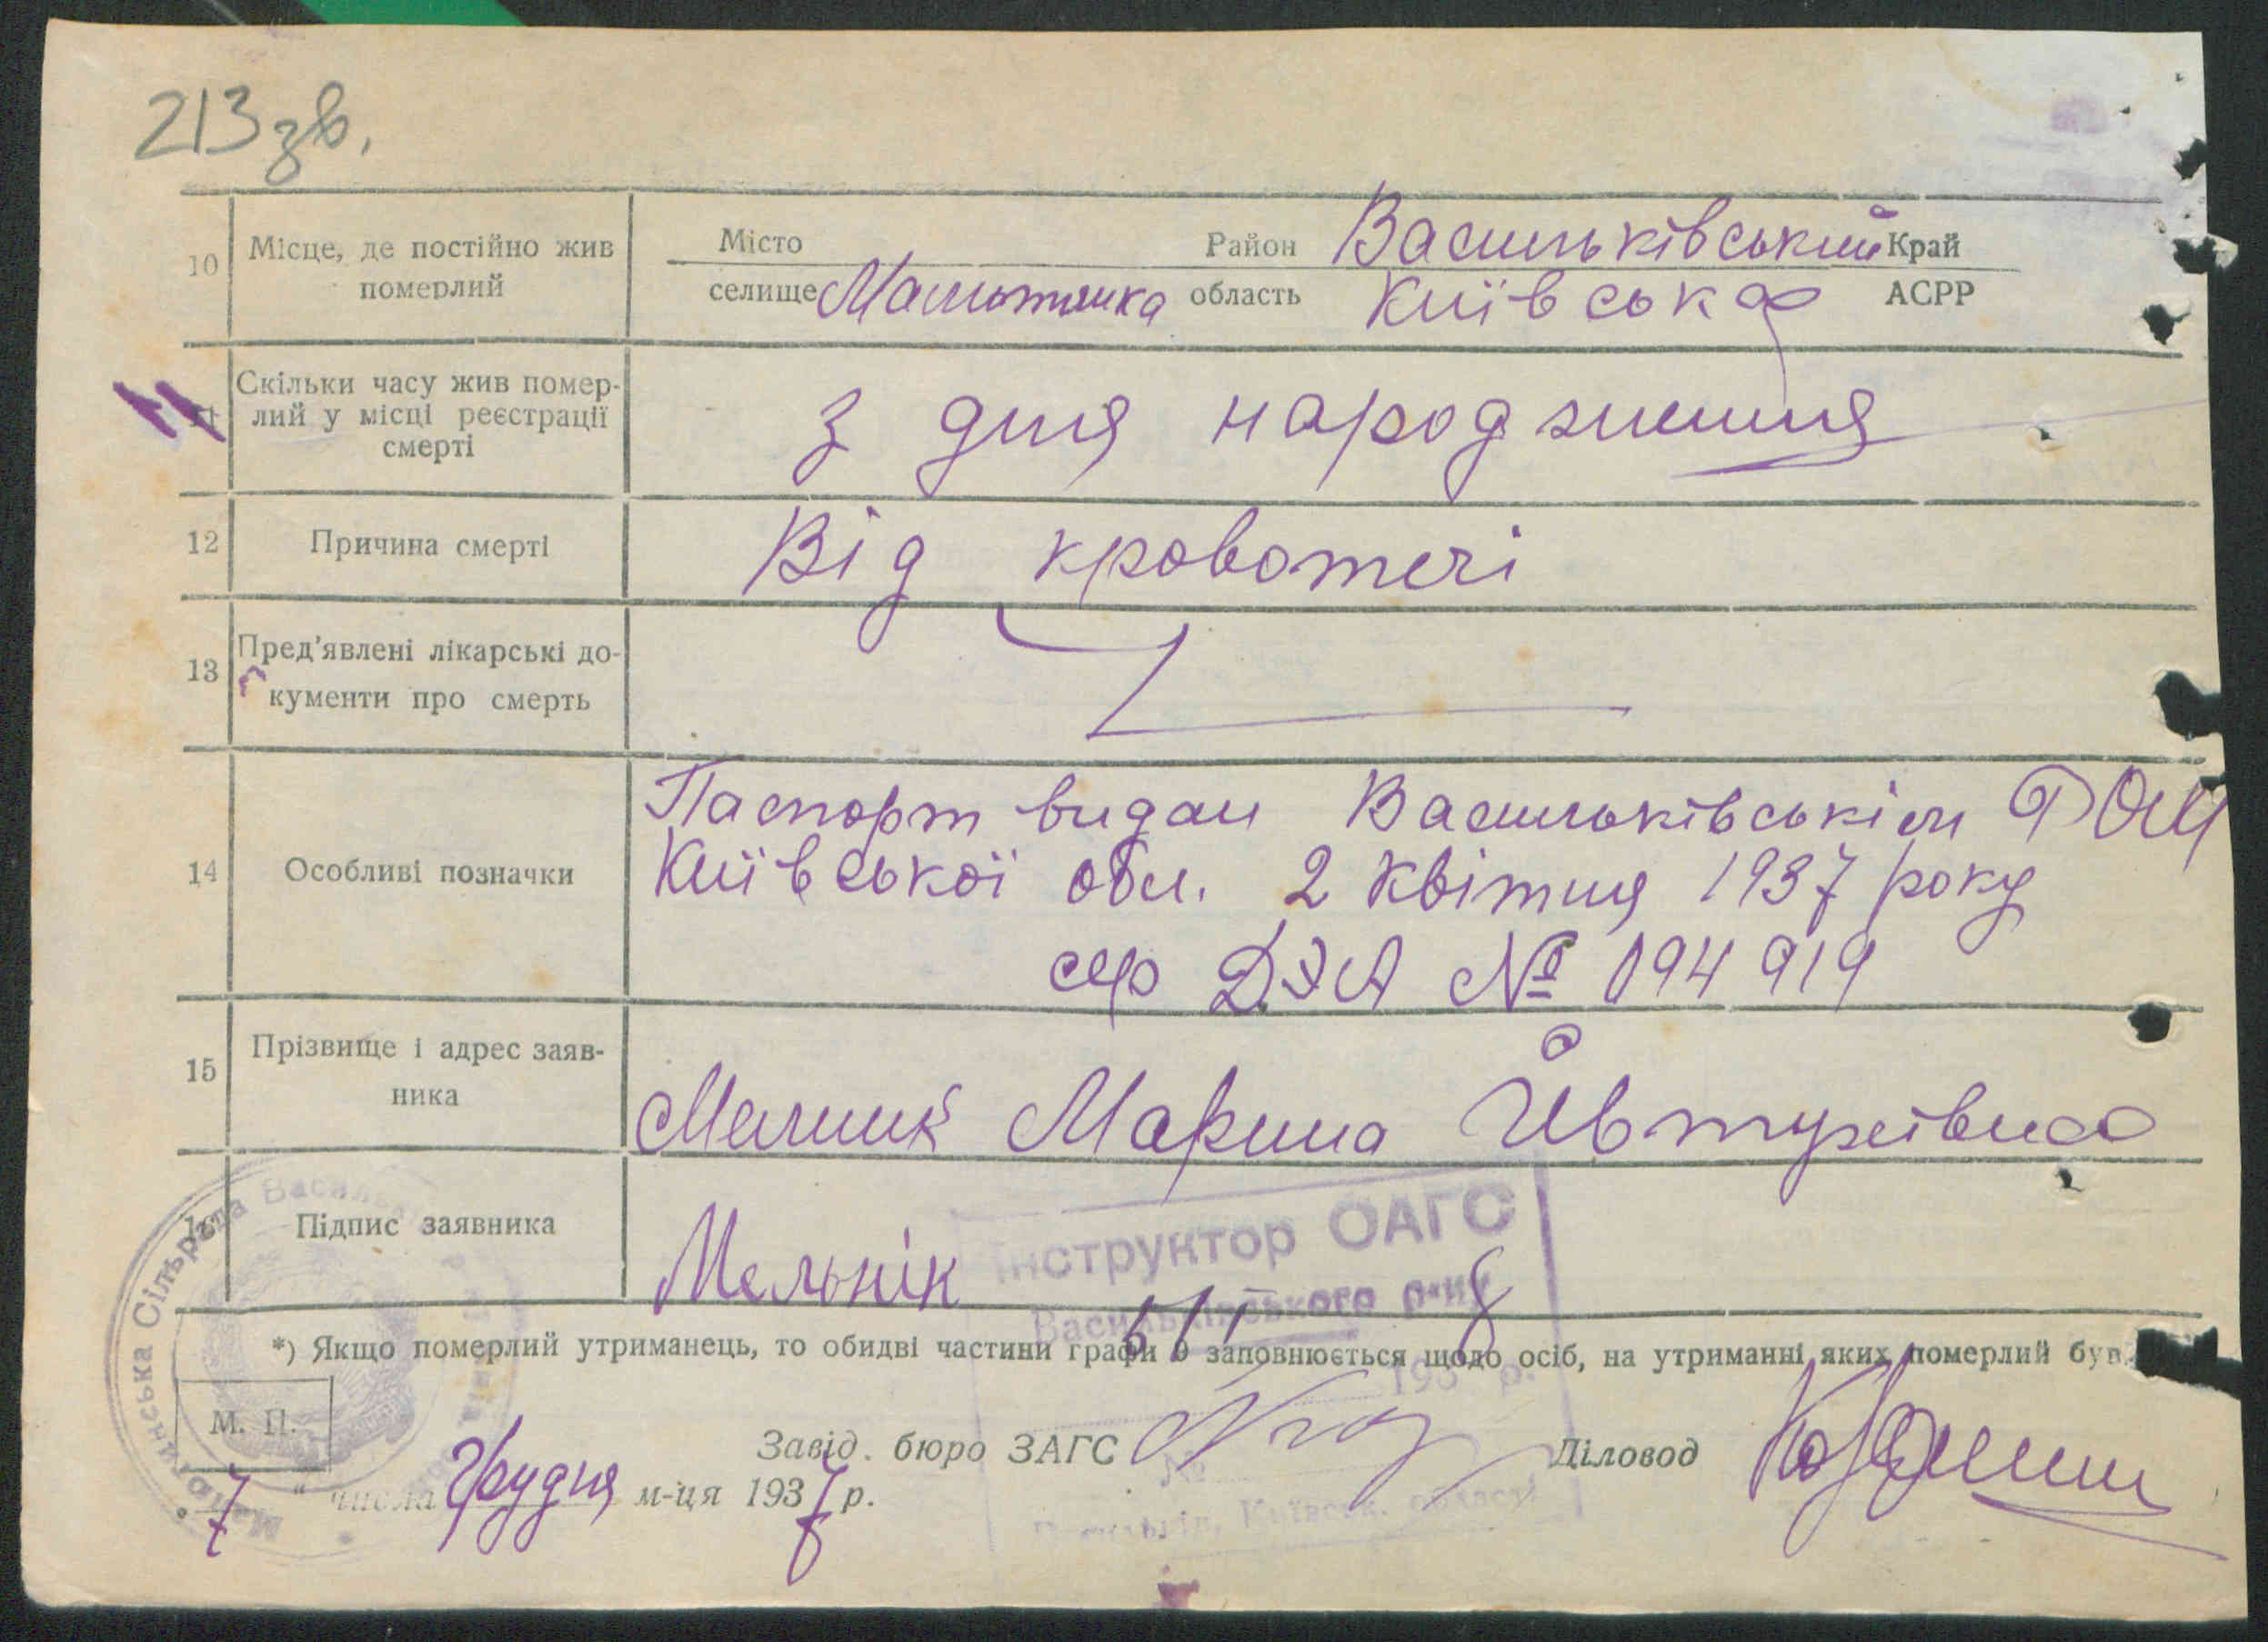 213 зв.
10 Місце, де постійно жив померлий
Місто Район Васильківський Край
селище Малютянка область Київська АСРР
11
Скільки часу жив помер-
лий у місці реєстрації
смерті
З дня народження
12 Причина смерті Від кровотечі
13 Пред'явлені лікарські до-
кументи про смерть
Паспорт видан Васильківськім
14 Особливі позначки Київської обл. 2 квітня 1937 року
сер № 094919
15 Прізвище і адрес заяв-
ника
Мелник Марина Йвтухівна
Підпис заявника Мельнік
Інструктор ОАГС
Васильківського р-ну
193 р.
*) Якщо померлий утриманець, то обидві частини графи 9 заповнюється щодо осіб, на утриманні яких померлий був.
М. П.
Завід. бюро ЗАГС Діловод
„7" числа Грудня м-ця 1937 р.
Сільрада